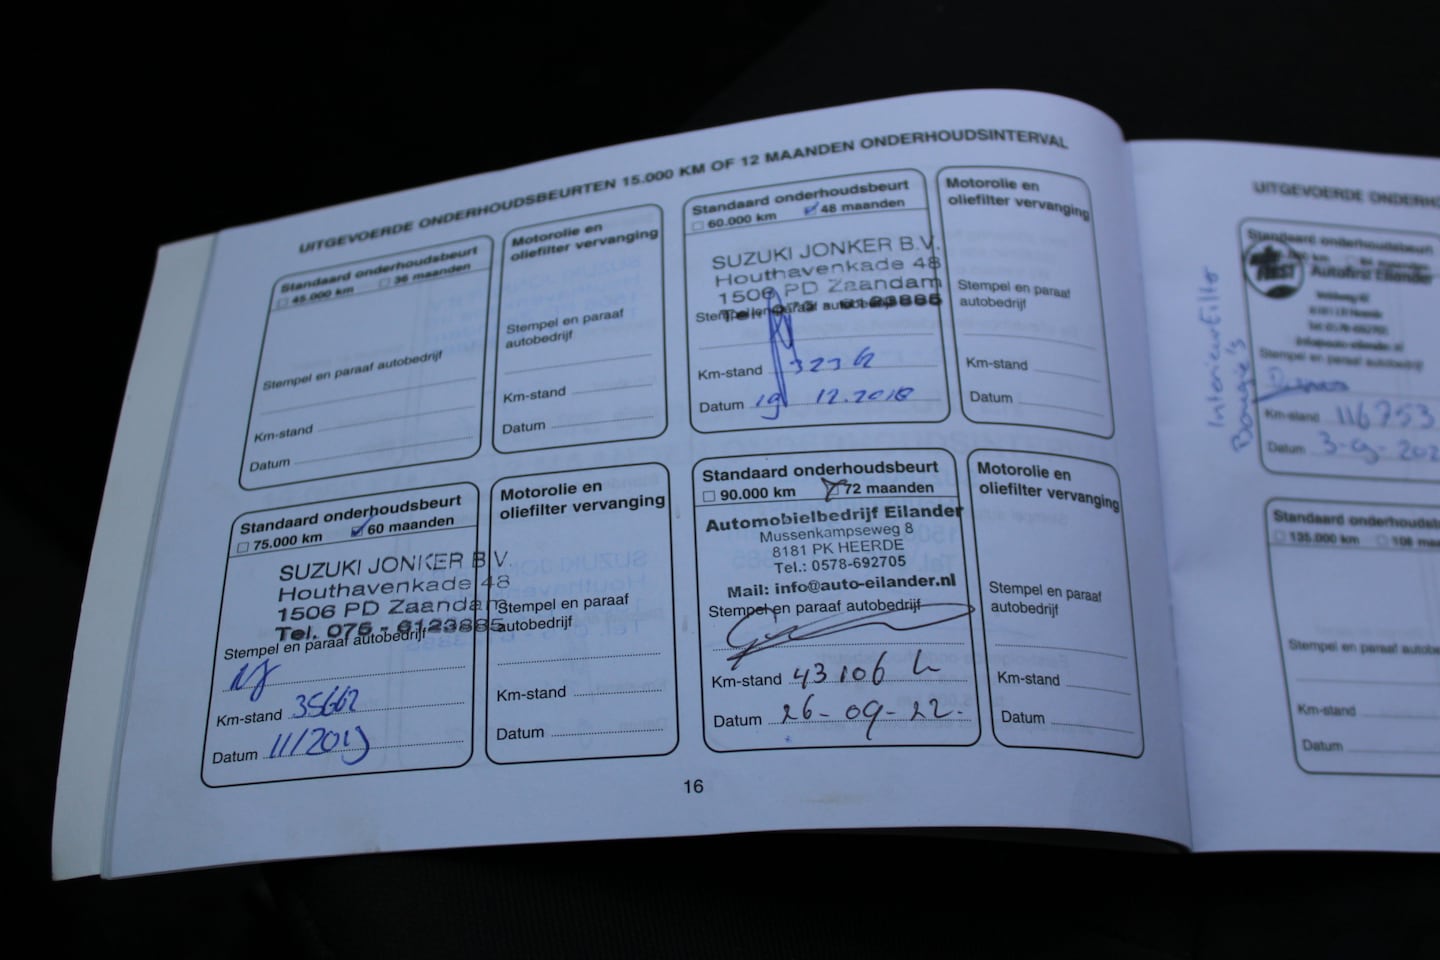 UITGEVOERDE ONDERHOUDSBEURTEN 15.000 KM OF 12 MAANDEN ONDERHOUDSINTERVAL
Standaard onderhoudsbeurt
45.000 km 36 maanden
Stempel en paraaf autobedrijf
Km-stand
Datum
Motorolie en
oliefilter vervanging
Stempel en paraaf
autobedrijf
Km-stand
Datum
Standaard onderhoudsbeurt
60.000 km 48 maanden
SUZUKI JONKER B.V.
Houthavenkade 48
1506 PD Zaandam
Stempel en paraaf autobedrijf
Km-stand
Datum 19 12.2018
Motorolie en
oliefilter vervanging
Stempel en paraaf
autobedrijf
Km-stand
Datum
Standaard onderhoudsbeurt
75.000 km 60 maanden
SUZUKI JONKER B.V.
Houthavenkade 48
1506 PD Zaandam
Tel. 075 - 6123885
Stempel en paraaf autobedrijf
Km-stand 35662
Datum 11/2019
Motorolie en
oliefilter vervanging
Stempel en paraaf
autobedrijf
Km-stand
Datum
Standaard onderhoudsbeurt
90.000 km 72 maanden
Automobielbedrijf Eilander
Mussenkampseweg 8
8181 PK HEERDE
Tel.: 0578-692705
Mail: info@auto-eilander.nl
Stempel en paraaf autobedrijf
Km-stand 43106
Datum 26-09-22.
Motorolie en
oliefilter vervanging
Stempel en paraaf
autobedrijf
Km-stand
Datum
16
UITGEVOERDE
Interieurfilter
Bougie's
Standaard onderhoudsbeurt
Autofirst Eilander
Stempel en paraaf
Km-stand 116753
Datum 3-9-202
Standaard
135.000 km 108
Stempel en paraaf
Km-stand
Datum